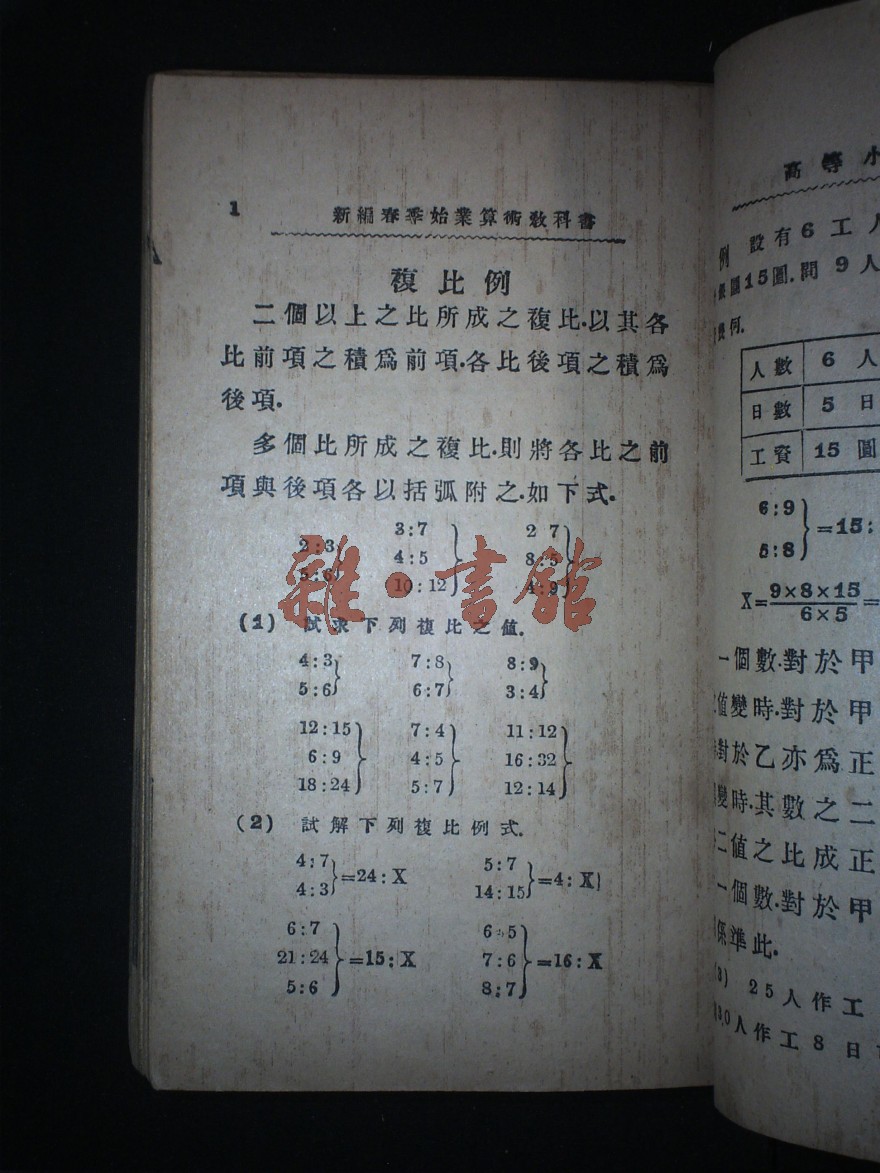 1
新編春季始業算術敎科書
複比例
二個以上之比所成之複比.以其各
比前項之積爲前項.各比後項之積爲
後項.
多個比所成之複比.則將各比之前
項與後項各以括弧附之.如下式.
2:3 3:7 2 7
5:6 4:5 8:5
10:12 4:9
(1) 試求下列複比之值.
4:3 7:8 8:9
5:6 6:7 3:4
12:15 7:4 11:12
6:9 4:5 16:32
18:24 5:7 12:14
(2) 試解下列複比例式.
4:7 5:7
4:3 =24:X 14:15 =4:X
6:7 6:5
21:24 =15:X 7:6 =16:X
5:6 8:7
雜·書館
高等小
例 設有6工人
圓15圓.問9人
幾何.
人數 6 人
日數 5 日
工資 15 圓
6:9
5:8 =15:
X=9×8×15/6×5=
一個數.對於甲
值變時.對於甲
對於乙亦爲正
變時.其數之二
二值之比成正
一個數.對於甲
係準此.
(3) 25人作工
30人作工8日